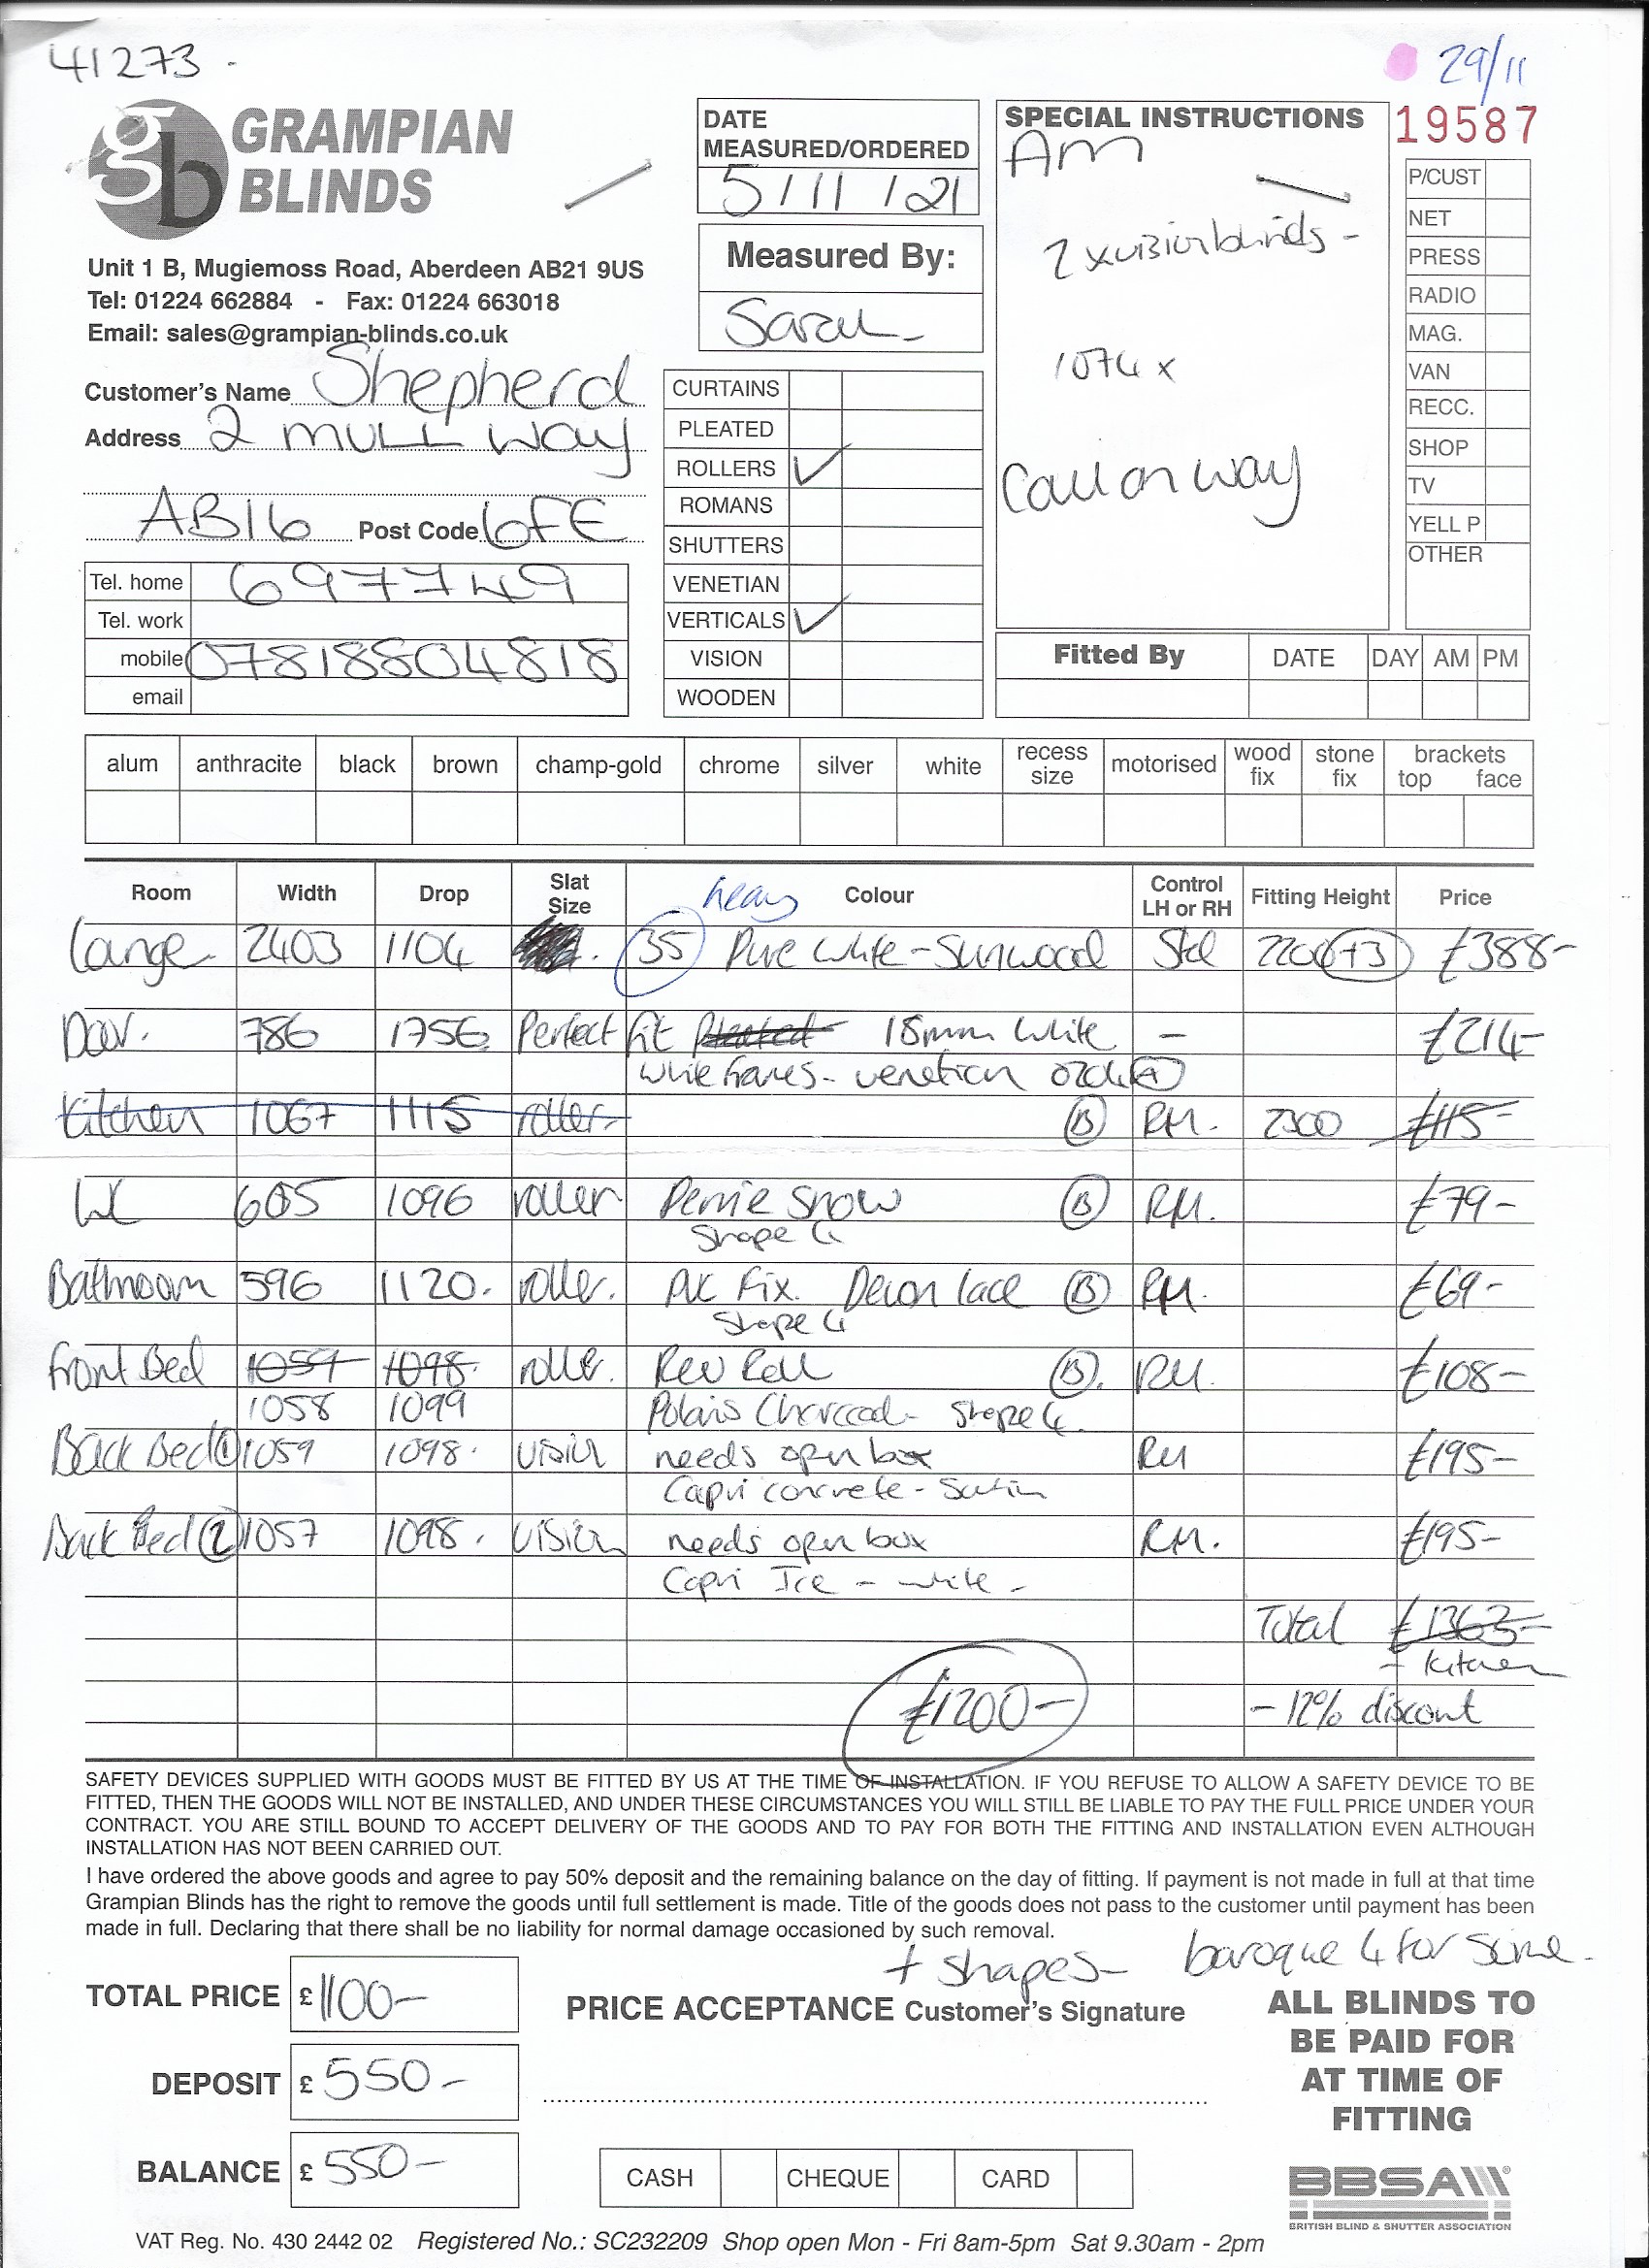 41273.
29/11
gb GRAMPIAN BLINDS
19587
Unit 1 B, Mugiemoss Road, Aberdeen AB21 9US
Tel: 01224 662884 - Fax: 01224 663018
Email: sales@grampian-blinds.co.uk
Customer's Name Shepherd
Address 2 MULL WAY
AB16 Post Code 6FE
Tel. home 697749
Tel. work
mobile 07818804818
email
DATE
MEASURED/ORDERED
5/11/21
Measured By:
Sarah
CURTAINS
PLEATED
ROLLERS ✓
ROMANS
SHUTTERS
VENETIAN
VERTICALS ✓
VISION
WOODEN
SPECIAL INSTRUCTIONS
AM
2 x vision blinds -
1074 x
Call on way
P/CUST
NET
PRESS
RADIO
MAG.
VAN
RECC.
SHOP
TV
YELL P
OTHER
Fitted By DATE DAY AM PM
alum anthracite black brown champ-gold chrome silver white recess size motorised wood fix stone fix brackets top face
Room Width Drop Slat Size heavy Colour Control LH or RH Fitting Height Price
Lounge 2403 1104 35 Pure White - Sunwood Std 2200 +3 £388-
Door. 786 1756 Perfect fit Pleated 18mm White - £214-
White frames - venetian (A)
Kitchen 1067 1115 roller- (B) RH. 2300 £115-
WC 605 1096 roller Snow (B) RH. £79-
Shape 4
Bathroom 596 1120. roller. PVC Fix. Devon lace (B) RH. £69-
Shape 4
Front Bed 1059 1098. roller. Rev Roll (B). RH. £108-
1058 1099 Polaris Charcoal - Shape 4
Back Bed (1) 1059 1098. vision needs open box RH £195-
Capri concrete - Satin
Back Bed (2) 1057 1098. vision needs open box RH. £195-
Capri Ice - white -
Total £1363-
- Kitchen
£1200- - 12% discont
SAFETY DEVICES SUPPLIED WITH GOODS MUST BE FITTED BY US AT THE TIME OF INSTALLATION. IF YOU REFUSE TO ALLOW A SAFETY DEVICE TO BE
FITTED, THEN THE GOODS WILL NOT BE INSTALLED, AND UNDER THESE CIRCUMSTANCES YOU WILL STILL BE LIABLE TO PAY THE FULL PRICE UNDER YOUR
CONTRACT. YOU ARE STILL BOUND TO ACCEPT DELIVERY OF THE GOODS AND TO PAY FOR BOTH THE FITTING AND INSTALLATION EVEN ALTHOUGH
INSTALLATION HAS NOT BEEN CARRIED OUT.
I have ordered the above goods and agree to pay 50% deposit and the remaining balance on the day of fitting. If payment is not made in full at that time
Grampian Blinds has the right to remove the goods until full settlement is made. Title of the goods does not pass to the customer until payment has been
made in full. Declaring that there shall be no liability for normal damage occasioned by such removal.
+ shapes - baroque 4 for some.
TOTAL PRICE £ 1100-
PRICE ACCEPTANCE Customer's Signature
DEPOSIT £ 550-
BALANCE £ 550-
CASH CHEQUE CARD
ALL BLINDS TO
BE PAID FOR
AT TIME OF
FITTING
BBSA
BRITISH BLIND & SHUTTER ASSOCIATION
VAT Reg. No. 430 2442 02 Registered No.: SC232209 Shop open Mon - Fri 8am-5pm Sat 9.30am - 2pm